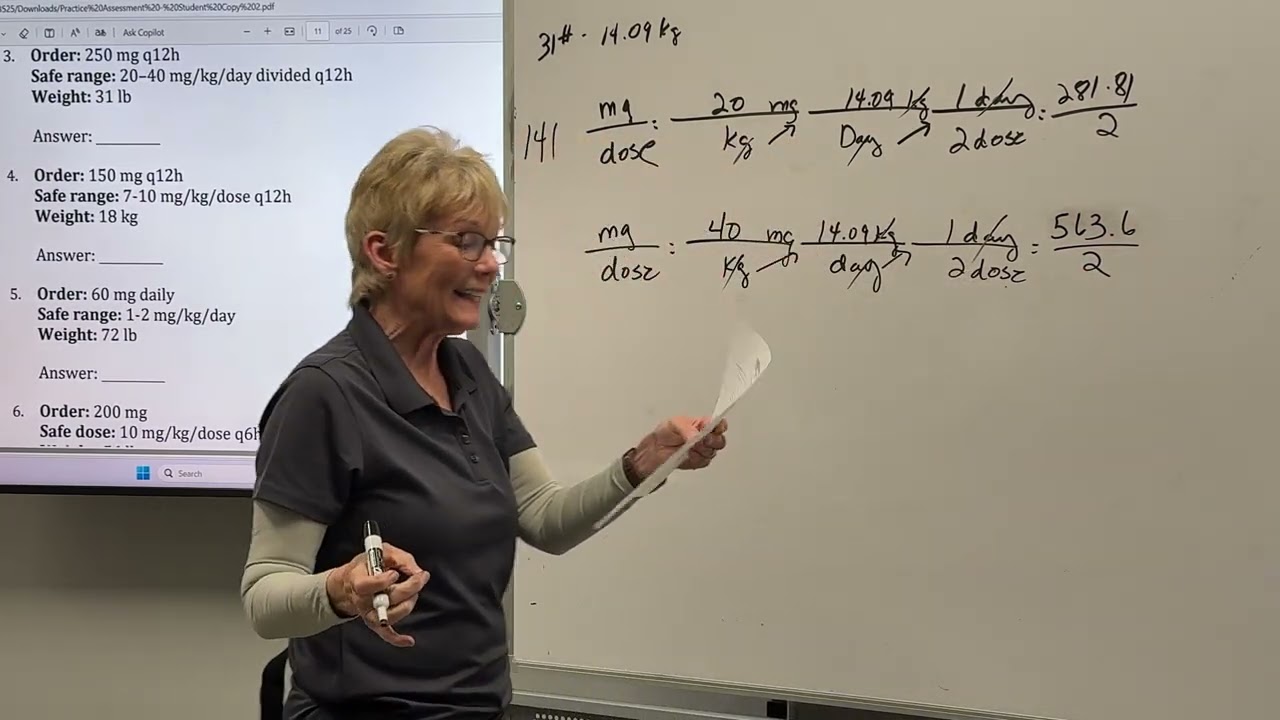 3525/Downloads/Practice%20Assessment%20-%20Student%20Copy%202.pdf
Ask Copilot
11 of 25
3. Order: 250 mg q12h
Safe range: 20–40 mg/kg/day divided q12h
Weight: 31 lb
Answer: ________
4. Order: 150 mg q12h
Safe range: 7-10 mg/kg/dose q12h
Weight: 18 kg
Answer: ________
5. Order: 60 mg daily
Safe range: 1-2 mg/kg/day
Weight: 72 lb
Answer: ________
6. Order: 200 mg
Safe dose: 10 mg/kg/dose q6h
Search
31# - 14.09 kg
141 mg 20 mg 14.09 kg 1 day 281.81
dose = kg Day 2 dose = 2
mg 40 mg 14.09 kg 1 day 563.6
dose = kg day 2 dose = 2